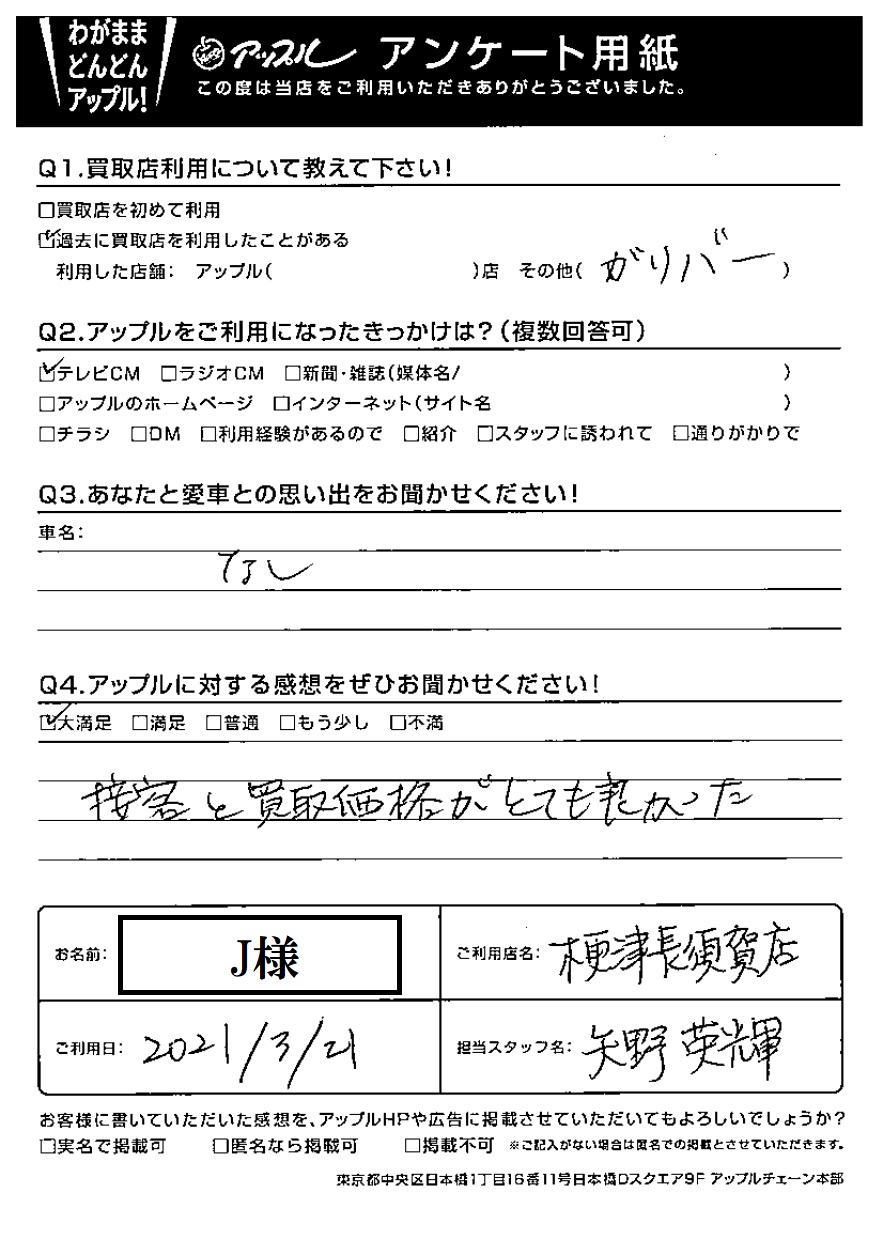 わがまま
どんどん
アップル!
アップル アンケート用紙
この度は当店をご利用いただきありがとうございました。
Q1.買取店利用について教えて下さい!
□買取店を初めて利用
☑過去に買取店を利用したことがある
利用した店舗: アップル( )店 その他( ガリバー )
Q2.アップルをご利用になったきっかけは?(複数回答可)
☑テレビCM □ラジオCM □新聞・雑誌(媒体名/ )
□アップルのホームページ □インターネット(サイト名 )
□チラシ □DM □利用経験があるので □紹介 □スタッフに誘われて □通りがかりで
Q3.あなたと愛車との思い出をお聞かせください!
車名:
なし
Q4.アップルに対する感想をぜひお聞かせください!
☑大満足 □満足 □普通 □もう少し □不満
接客と買取価格がとても良かった
お名前: J様
ご利用店名: 木更津長須賀店
ご利用日: 2021/3/21
担当スタッフ名: 矢野 英輝
お客様に書いていただいた感想を、アップルHPや広告に掲載させていただいてもよろしいでしょうか?
□実名で掲載可 □匿名なら掲載可 □掲載不可 ※ご記入がない場合は匿名での掲載とさせていただきます。
東京都中央区日本橋1丁目16番11号日本橋Dスクエア9F アップルチェーン本部